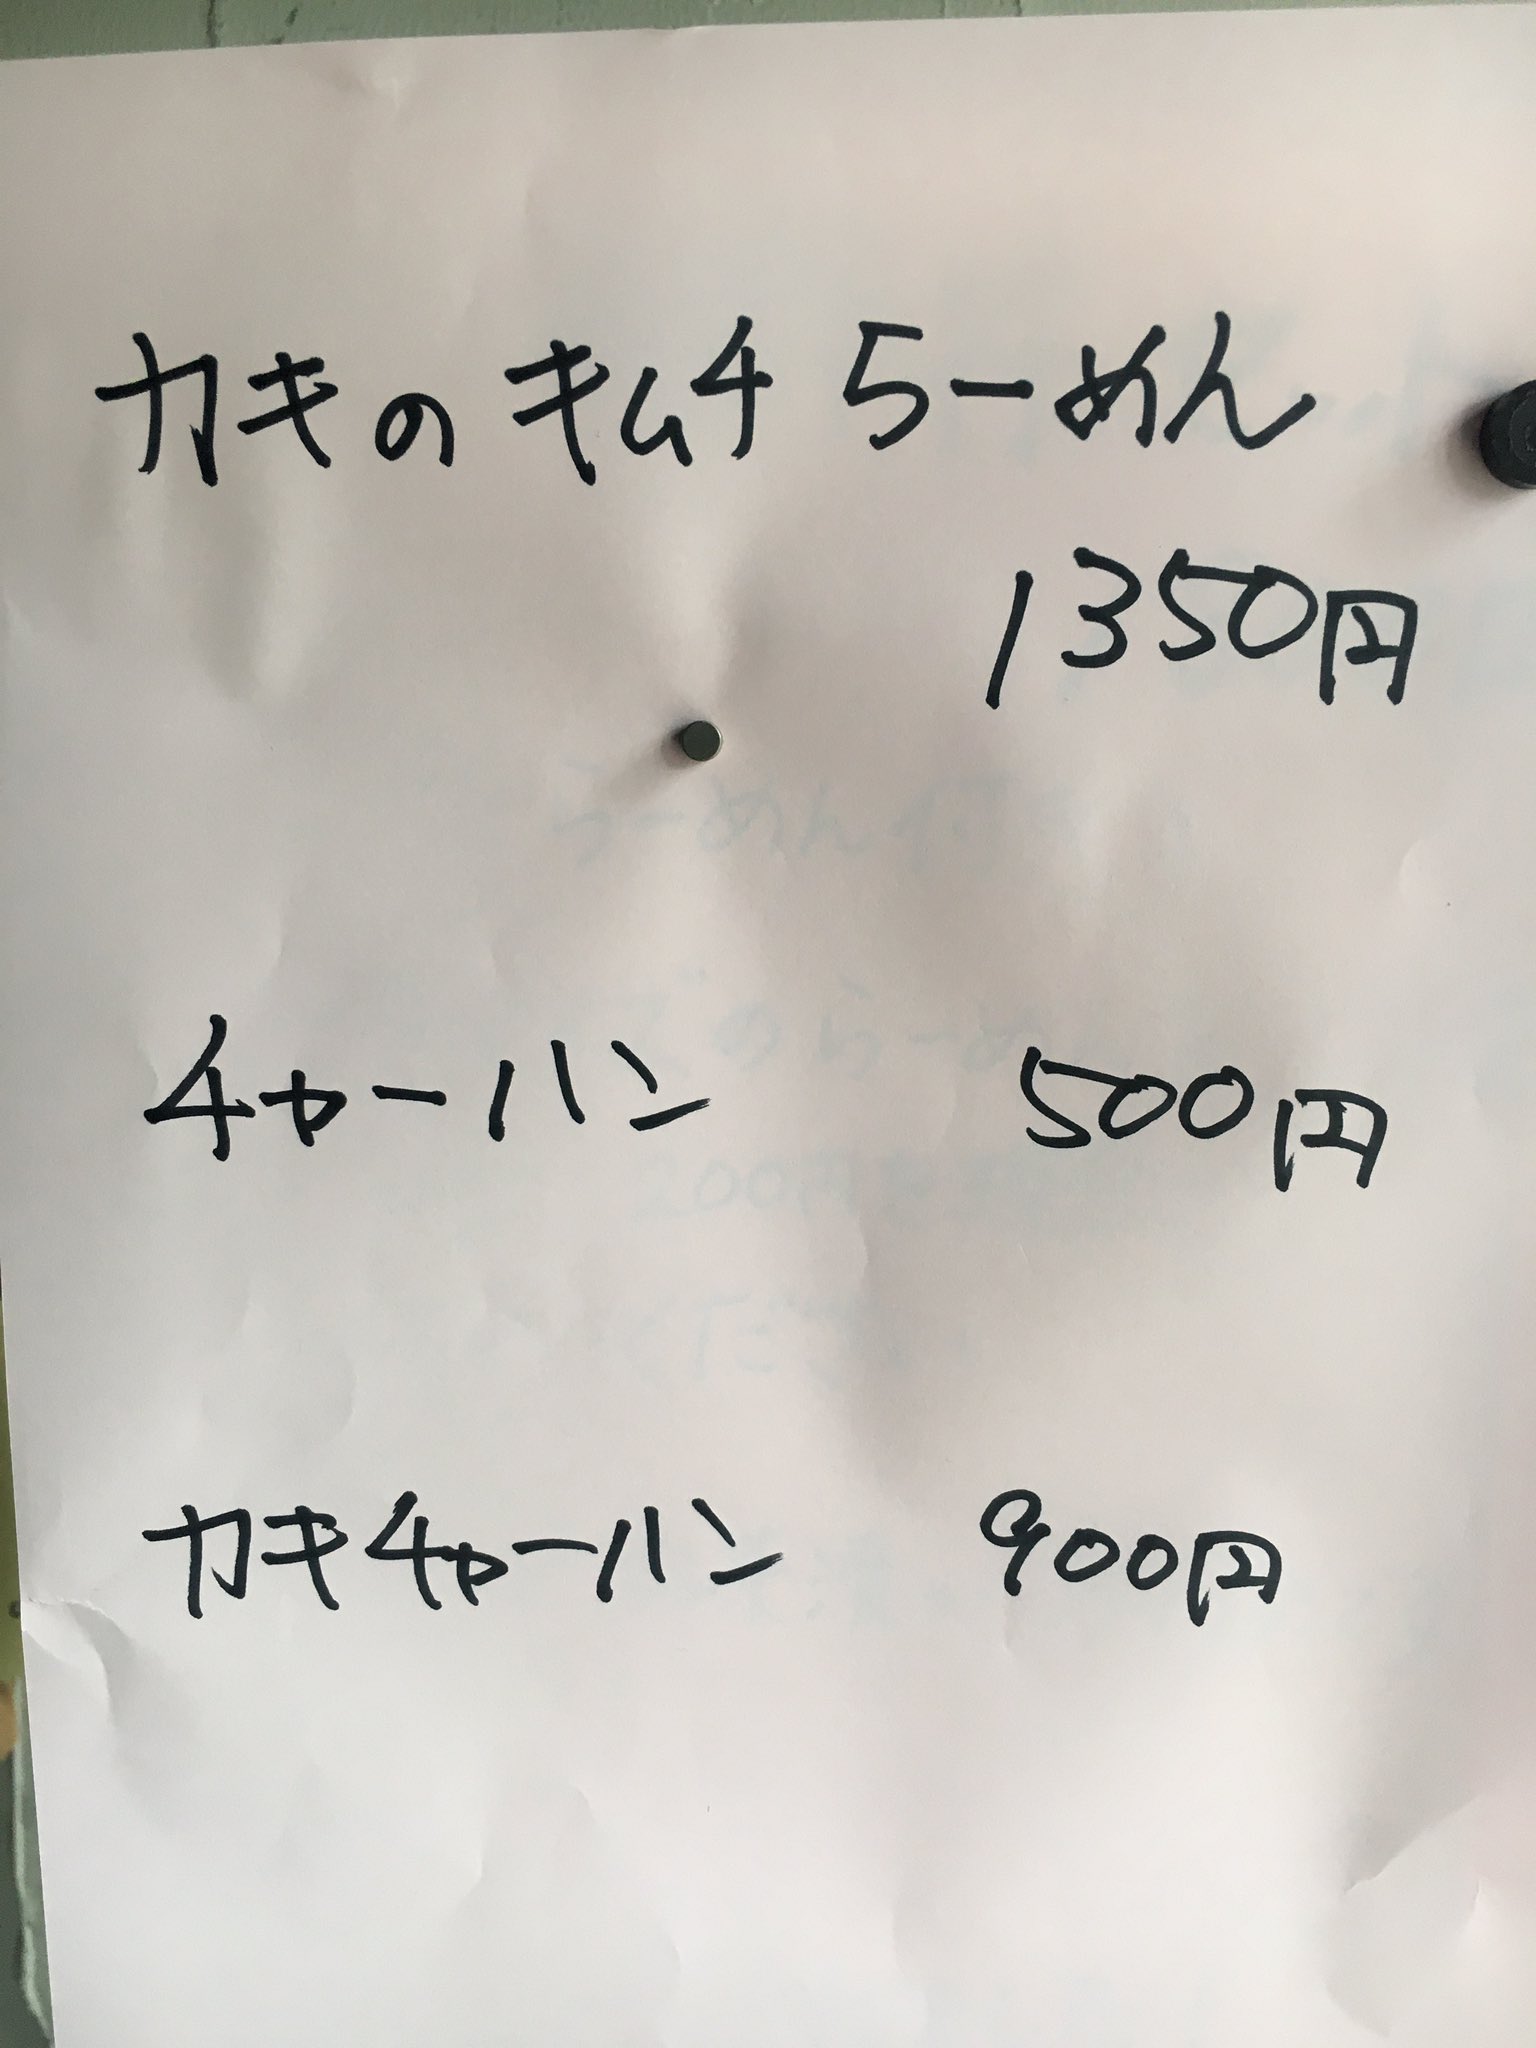 カキのキムチらーめん
1350円
チャーハン 500円
カキチャーハン 900円